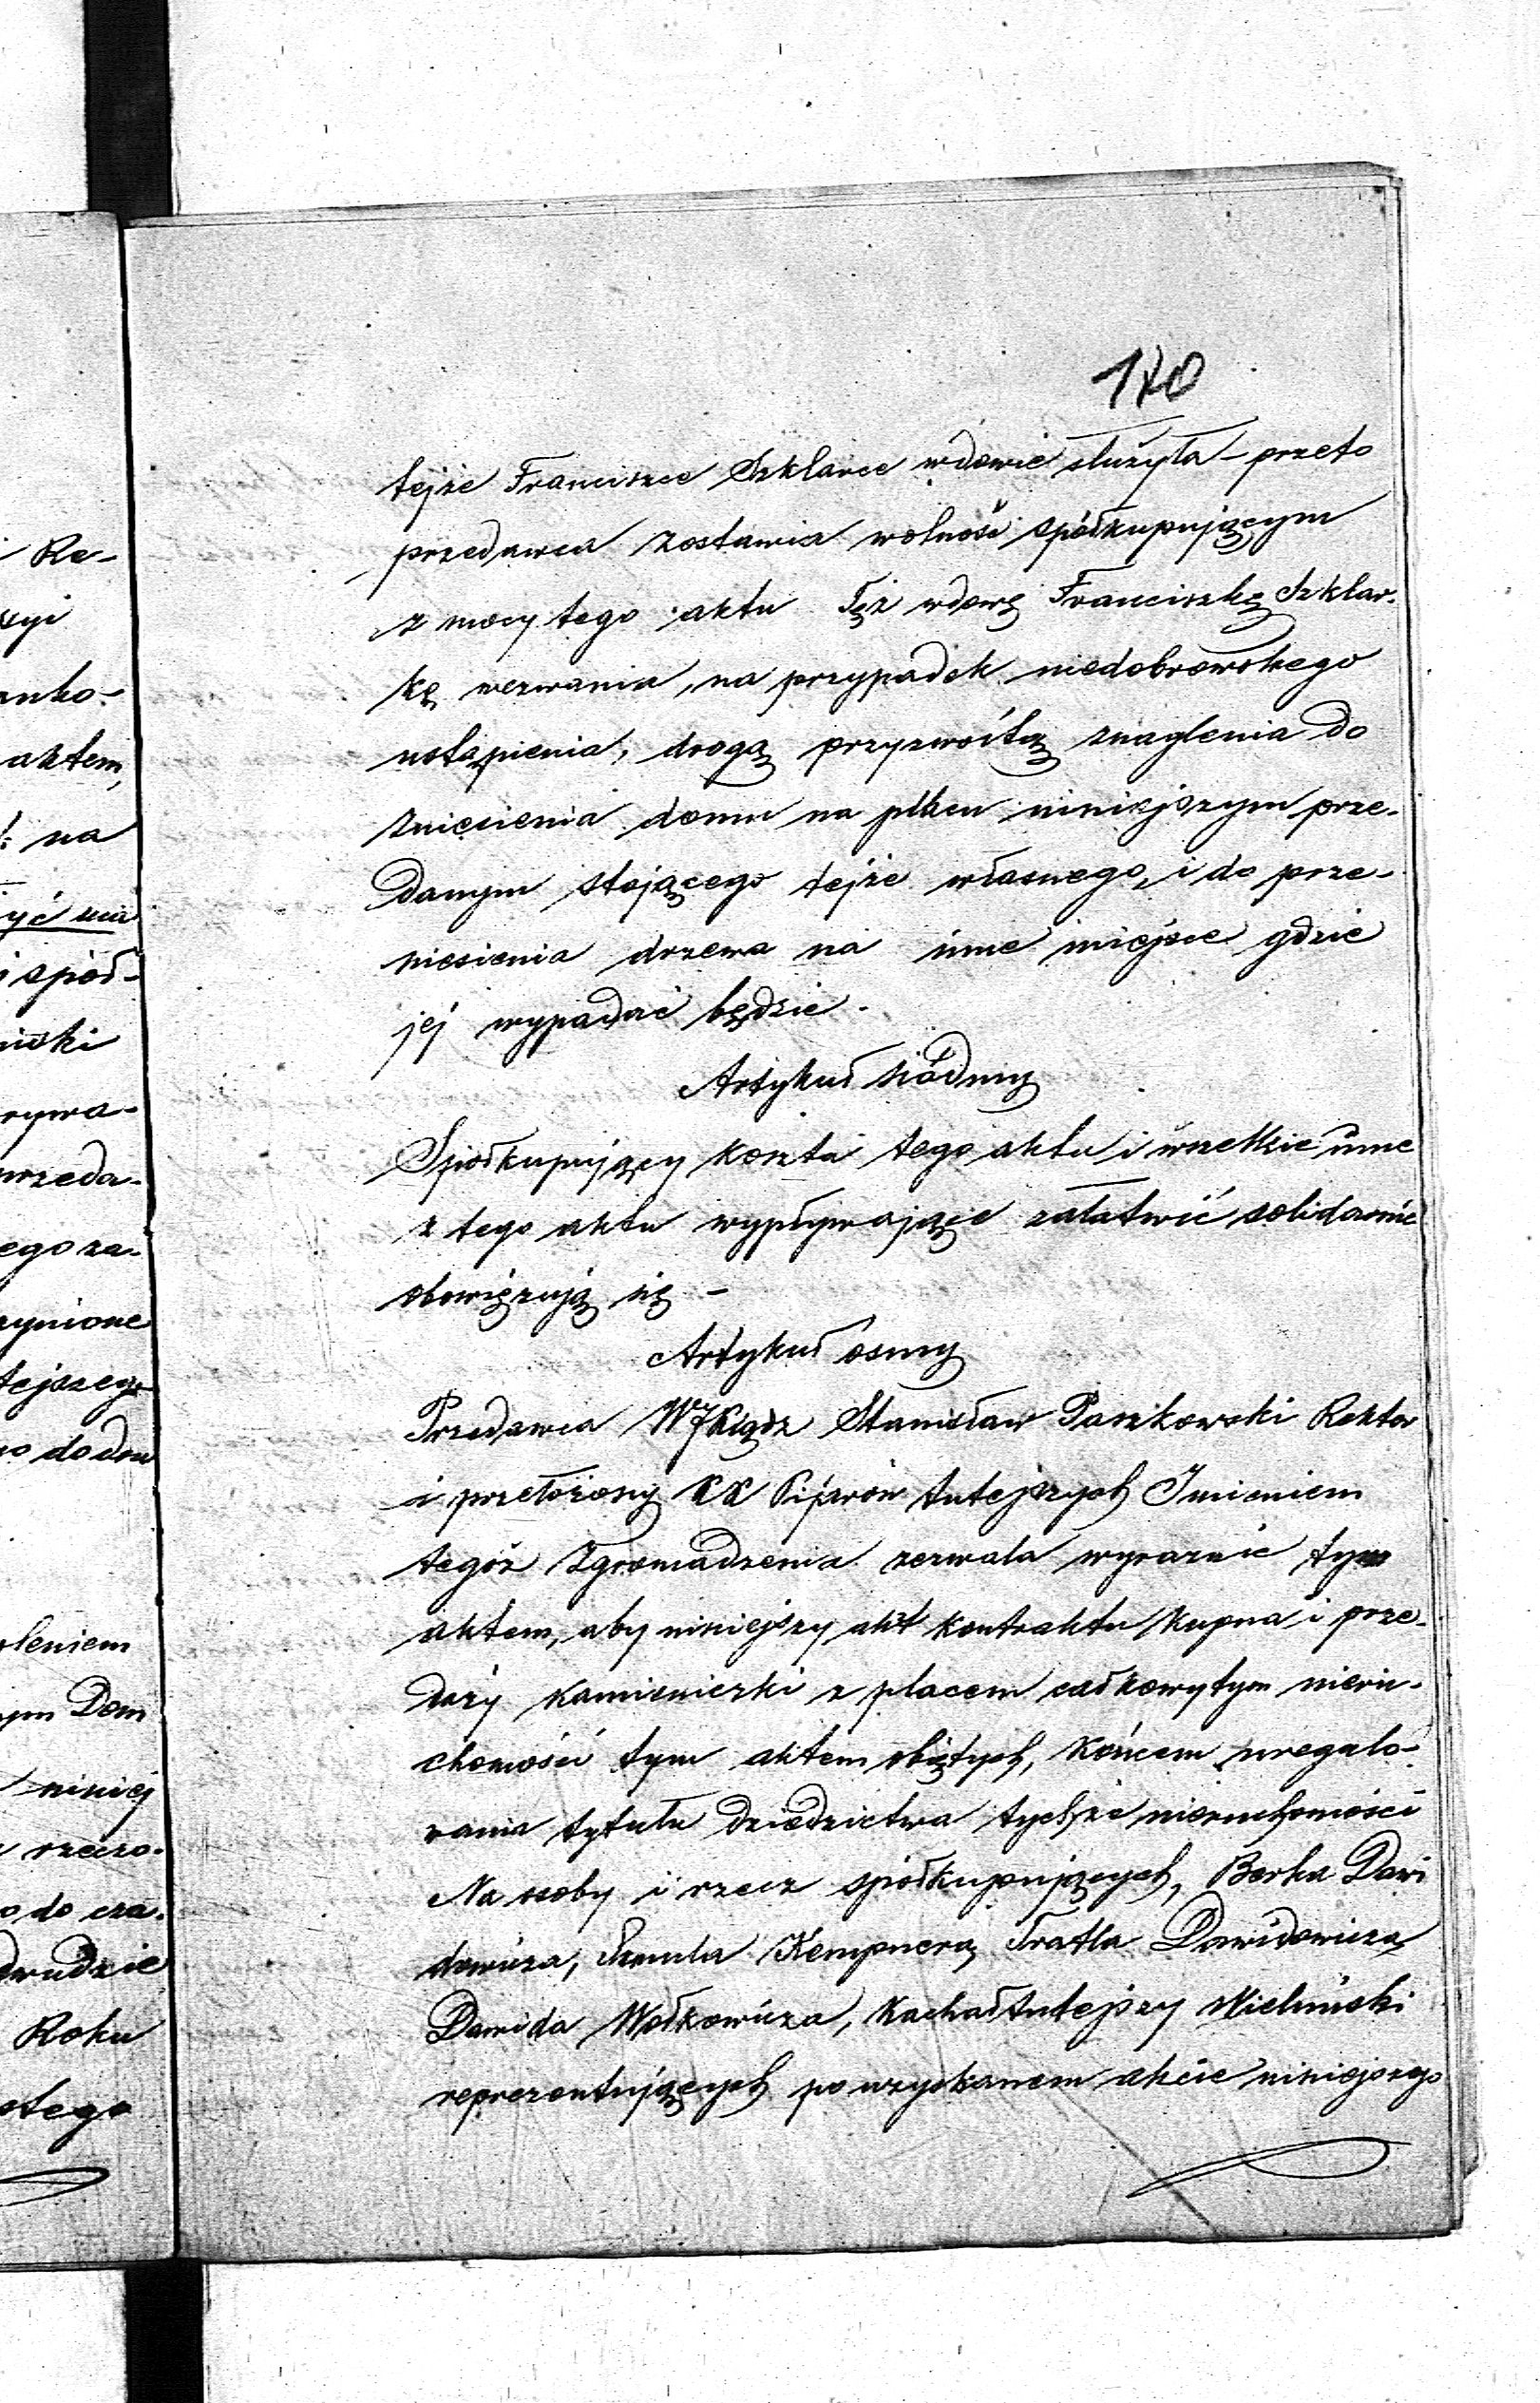 170
tejże Franciszce Szklarce wdowie służyła – przeto
przedawca zostawia wolność spółkupującym
z mocy tego aktu Tęż wdowę Franciszkę Szklar-
kę wezwania, na przypadek niedobrowolnego
ustąpienia, drogą przyzwoitą znaglenia do
zniesienia domu na placu niniejszym prze-
danym stojącego tejże własnego, i do prze-
niesienia drzewa na inne miejsce gdzie
jej wypadać będzie.
Artykuł siódmy
Spółkupujący koszta tego aktu i wszelkie inne
z tego aktu wypływające załatwić solidarnie
obowięzują się –
Artykuł ósmy
Przedawca WJXiądz Stanisław Paszkowski Rektor
i przełożony XX Pijarów tutejszych Imieniem
tegoż Zgromadzenia zezwala wyraźnie tym
aktem, aby niniejszy akt kontraktu kupna i prze-
daży kamieniczki z placem całkowytym nieru-
chomości tym aktem objętych, końcem uregulo-
wania tytułu dziedzictwa tychże nieruchomości
Na osoby i rzecz spółkupujących, Berka Dawi
dowicza, Szmula Kempnera, Fratla Dawidowicza,
Dawida Wołkowicza, Kachał tutejszy Wieluński
reprezentujących po uzyskanem akcie niniejszego
Re-
akten,
na
yć ma
i spół-
przeda-
ego za-
tejszego
Dom
niniej
o do cza-
Roku